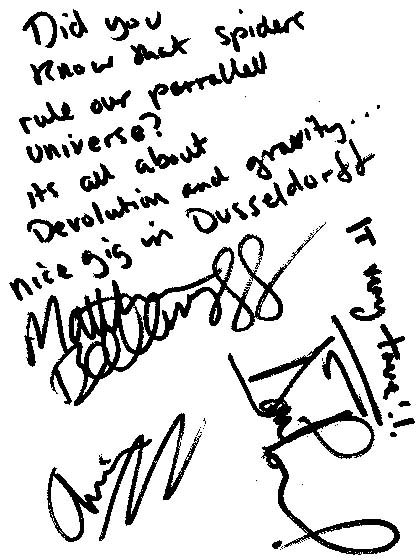 Did you
know that spiders
rule our perrallell
universe?
its all about
Devolution and gravity...
nice gig in Dusseldorff
Matthew
Bellamy
It very true!!
Chris